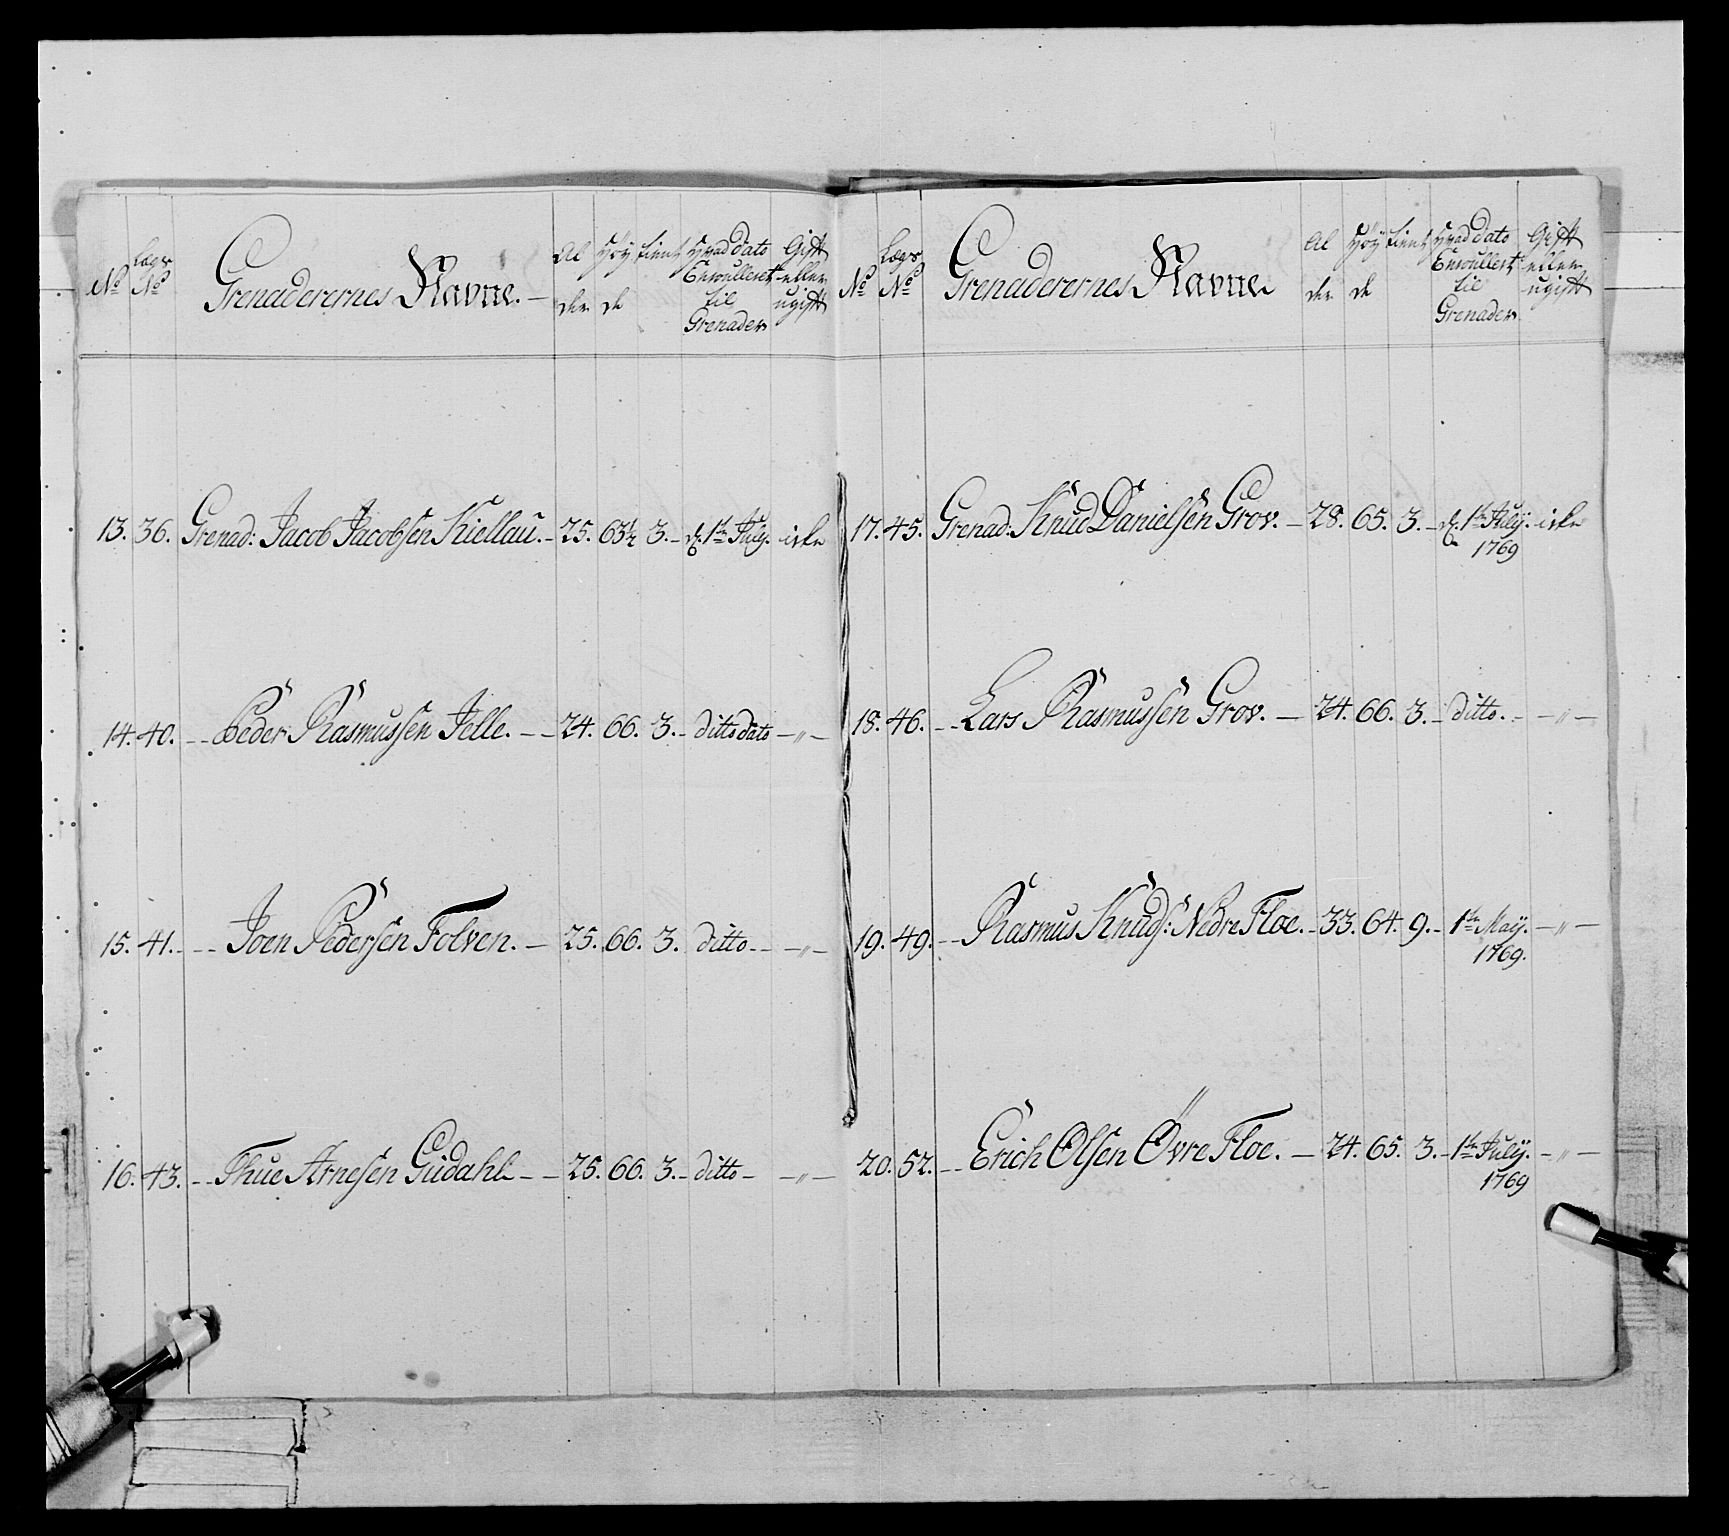 No
Lægs No
Grenaderernes Navne.
Al der
Høy de
tient
Hvad dato Enroulleret til Grenader
Gift eller ugift
13. 36. Grenad: Jacob Jacobsen Kiellau. 25. 63½ 3. d. 1te July. icke
14. 40. Peder Rasmussen Jelle. 24. 66. 3. ditto dato — " —
15. 41. Joen Pedersen Folven. 25. 66. 3. ditto — " —
16. 43. Thue Arnesen Gudahl 25. 66. 3. ditto — " —
No
Lægs No
Grenaderernes Navne
Al der
Høy de
tient
Hvad dato Enroullert til Grenader
Gift eller ugift
17. 45. Grenad: Knud Danielsen Grov. 28. 65. 3. d. 1te July. icke
1769
18. 46. Lars Rasmussen Grov. 24. 66. 3. ditto. — " —
19. 49. Rasmus Knuds: Nedre Floe. 33. 64. 9. 1te Maij. — " —
1769.
20. 52. Erich Olsen Øvre Floe. 24. 65. 3. 1te July. — " —
1769